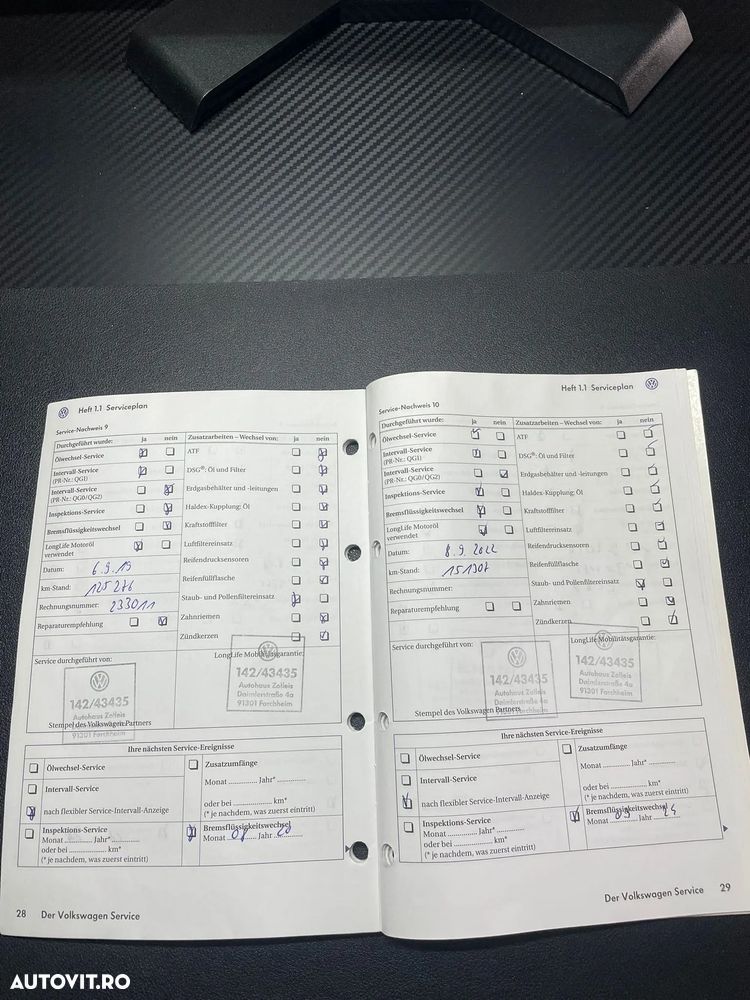 Heft 1.1 Serviceplan
Service-Nachweis 9
Durchgeführt wurde: ja nein
Zusatzarbeiten – Wechsel von: ja nein
Ölwechsel-Service
ATF
Intervall-Service
(PR-Nr.: QG1)
DSG®: Öl und Filter
Intervall-Service
(PR-Nr.: QG0/QG2)
Erdgasbehälter und -leitungen
Inspektions-Service
Haldex-Kupplung; Öl
Bremsflüssigkeitswechsel
Kraftstofffilter
LongLife Motoröl
verwendet
Luftfiltereinsatz
Datum: 6.9.19
Reifendrucksensoren
km-Stand: 125 276
Reifenfüllflasche
Rechnungsnummer: 233011
Staub- und Pollenfiltereinsatz
Reparaturempfehlung
Zahnriemen
Zündkerzen
Service durchgeführt von:
LongLife Mobilitätsgarantie:
142/43435
Autohaus Zolleis
Daimlerstraße 4a
91301 Forchheim
142/43435
Autohaus Zolleis
Daimlerstraße 4a
91301 Forchheim
Stempel des Volkswagen Partners
Ihre nächsten Service-Ereignisse
Ölwechsel-Service
Zusatzumfänge
Monat ............ Jahr* ............
Intervall-Service
oder bei ............ km*
(* je nachdem, was zuerst eintritt)
nach flexibler Service-Intervall-Anzeige
Inspektions-Service
Monat ............ Jahr* ............
oder bei ............ km*
(* je nachdem, was zuerst eintritt)
Bremsflüssigkeitswechsel
Monat 07 Jahr 20
28 Der Volkswagen Service
Heft 1.1 Serviceplan
Service-Nachweis 10
Durchgeführt wurde: ja nein
Zusatzarbeiten – Wechsel von: ja nein
Ölwechsel-Service
ATF
Intervall-Service
(PR-Nr.: QG1)
DSG®: Öl und Filter
Intervall-Service
(PR-Nr.: QG0/QG2)
Erdgasbehälter und -leitungen
Inspektions-Service
Haldex-Kupplung; Öl
Bremsflüssigkeitswechsel
Kraftstofffilter
LongLife Motoröl
verwendet
Luftfiltereinsatz
Datum: 8.9.2022
Reifendrucksensoren
km-Stand: 151307
Reifenfüllflasche
Rechnungsnummer:
Staub- und Pollenfiltereinsatz
Reparaturempfehlung
Zahnriemen
Zündkerzen
Service durchgeführt von:
LongLife Mobilitätsgarantie:
142/43435
Autohaus Zolleis
Daimlerstraße 4a
91301 Forchheim
142/43435
Autohaus Zolleis
Daimlerstraße 4a
91301 Forchheim
Stempel des Volkswagen Partners
Ihre nächsten Service-Ereignisse
Ölwechsel-Service
Zusatzumfänge
Monat ............ Jahr* ............
Intervall-Service
oder bei ............ km*
(* je nachdem, was zuerst eintritt)
nach flexibler Service-Intervall-Anzeige
Inspektions-Service
Monat ............ Jahr* ............
oder bei ............ km*
(* je nachdem, was zuerst eintritt)
Bremsflüssigkeitswechsel
Monat 09 Jahr 24
Der Volkswagen Service 29
AUTOVIT.RO